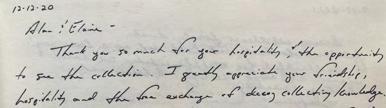 12-12-20
Alan & Elaine -
Thank you so much for your hospitality, & the opportunity
to see the collection. I greatly appreciate your friendship,
hospitality and the free exchange of decoy collecting knowledge.